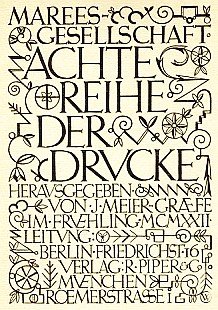 MAREES-
GESELLSCHAFT
ACHTE
REIHE
DER
DRVCKE
HERAUSGEGEBEN
VON·J·MEIER-GRÆFE
IM FRUEHLING MCMXXII
LEITUNG:
BERLIN·FRIEDRICHST·16
VERLAG·R·PIPER&
MUENCHEN
ROEMERSTRASSE 1